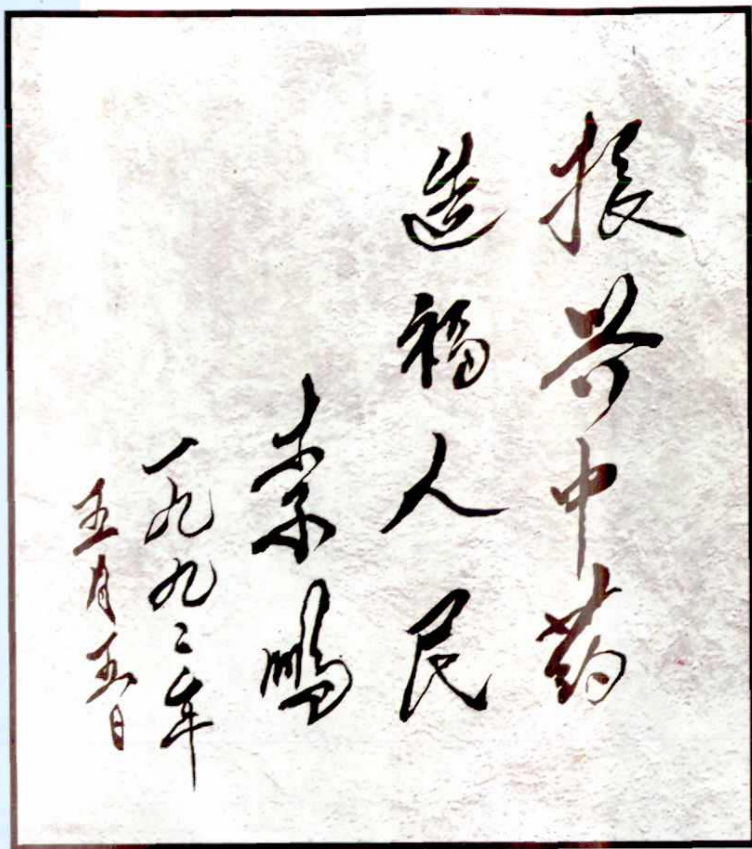 振兴中药
造福人民
李鹏
一九九二年
五月五日